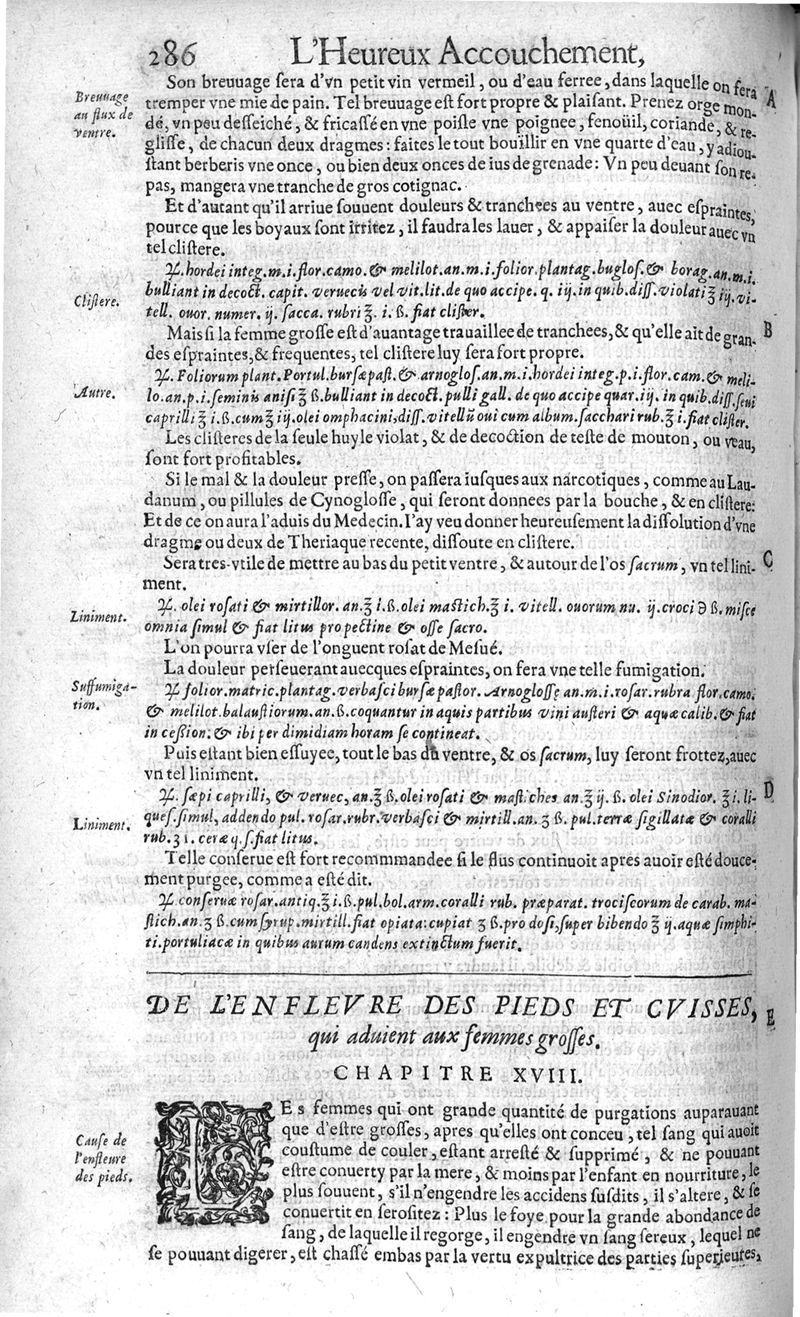 286 L'Heureux Accouchement,
Son breuuage sera d'vn petit vin vermeil, ou d'eau ferree, dans laquelle on fera
Breuuage au flux de ventre.
tremper vne mie de pain. Tel breuuage est fort propre & plaisant. Prenez orge mon-
A
dé, vn peu desseiché, & fricassé en vne poisle vne poignee, fenoüil, coriande, & re-
glisse, de chacun deux dragmes: faites le tout bouillir en vne quarte d'eau, y adiou-
stant berberis vne once, ou bien deux onces de ius de grenade: Vn peu deuant son re-
pas, mangera vne tranche de gros cotignac.
Et d'autant qu'il arriue souuent douleurs & tranchees au ventre, auec espraintes,
pource que les boyaux sont irritez, il faudra les lauer, & appaiser la douleur auec vn
tel clistere.
Clistere.
℞. hordei integ. m. i. flor. camo. & melilot. an. m. i. folior. plantag. buglos. & borag. an. m. i.
bulliant in decoct. capit. veruecis vel vit. lit. de quo accipe. q. iij. in quib. diss. violati ℥ iij. vi-
tell. ouor. numer. ij. sacca. rubri ℥. i. ß. fiat clister.
Mais si la femme grosse est d'auantage trauaillee de tranchees, & qu'elle ait de gran-
B
des espraintes, & frequentes, tel clistere luy sera fort propre.
Autre.
℞. Foliorum plant. Portul. bursæ past. & arnoglos. an. m. i. hordei integ. p. i. flor. cam. & meli-
lo. an. p. i. seminis anisi ℥ ß. bulliant in decoct. pulli gall. de quo accipe quar. iij. in quib. diss. seui
caprilli ℥ i. ß. cum ℥ iij. olei omphacini, diss. vitellũ oui cum album. sacchari rub. ℥ i. fiat clister.
Les clisteres de la seule huyle violat, & de decoction de teste de mouton, ou veau,
sont fort profitables.
Si le mal & la douleur presse, on passera iusques aux narcotiques, comme au Lau-
danum, ou pillules de Cynoglosse, qui seront donnees par la bouche, & en clistere:
Et de ce on aura l'aduis du Medecin. I'ay veu donner heureusement la dissolution d'vne
dragme ou deux de Theriaque recente, dissoute en clistere.
Sera tres-vtile de mettre au bas du petit ventre, & autour de l'os sacrum, vn tel lini-
C
ment.
Liniment.
℞. olei rosati & mirtillor. an. ℥ i. ß. olei mastich. ℥ i. vitell. ouorum nu. ij. croci ℈ ß. misce
omnia simul & fiat litus pro pectine & osse sacro.
L'on pourra vser de l'onguent rosat de Mesué.
La douleur perseuerant auecques espraintes, on fera vne telle fumigation.
Suffumigation.
℞ folior. matric. plantag. verbasci bursæ pastor. Arnoglosse an. m. i. rosar. rubra flor. camo.
& melilot. balaustiorum. an. ß. coquantur in aquis partibus vini austeri & aquæ calib. & fiat
in cession. & ibi per dimidiam horam se contineat.
Puis estant bien essuyee, tout le bas du ventre, & os sacrum, luy seront frottez, auec
vn tel liniment.
Liniment.
℞. sæpi caprilli, & veruec, an. ℥ ß. olei rosati & mastiches an. ℥ ij. ß. olei Sinodior. ℥ i. li-
D
ques. simul, addendo pul. rosar. rubr. verbasci & mirtill. an. ʒ ß. pul. terræ sigillatæ & coralli
rub. ʒ i. ceræ q. s. fiat litus.
Telle conserue est fort recommmandee si le flus continuoit apres auoir esté douce-
ment purgee, comme a esté dit.
℞ conseruæ rosar. antiq. ℥ i. ß. pul. bol. arm. coralli rub. præparat. trociscorum de carab. ma-
stich. an. ʒ ß. cum syrup. mirtill. fiat opiata: cupiat ʒ ß. pro dosi, super bibendo ℥ ij. aquæ simphi-
ti. portuliacæ in quibus aurum candens extinctum fuerit.
DE L'ENFLEVRE DES PIEDS ET CVISSES,
E
qui aduient aux femmes grosses.
CHAPITRE XVIII.
LEs femmes qui ont grande quantité de purgations auparauant
Cause de l'enfleure des pieds.
que d'estre grosses, apres qu'elles ont conceu, tel sang qui auoit
coustume de couler, estant arresté & supprimé, & ne pouuant
estre conuerty par la mere, & moins par l'enfant en nourriture, le
plus souuent, s'il n'engendre les accidens susdits, il s'altere, & se
conuertit en serositez: Plus le foye pour la grande abondance de
sang, de laquelle il regorge, il engendre vn sang sereux, lequel ne
se pouuant digerer, est chassé embas par la vertu expultrice des parties superieures,